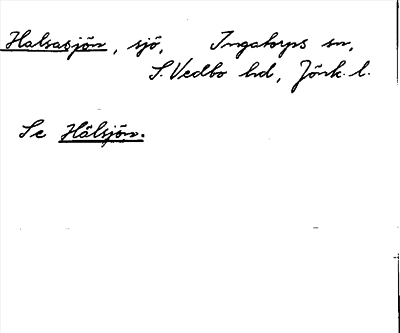 Halsasjön, sjö, Ingatorps sn,
S. Vedbo hd, Jönk. l.
Se Hälsjön.